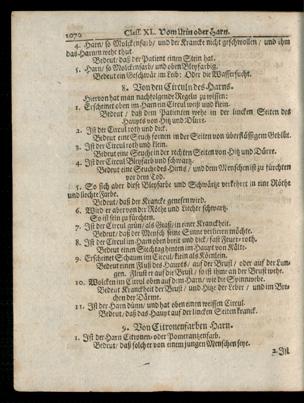 1070 Class. XI. Vom Urin oder Harn.
4. Harn/ so Molckenfarb/ und der Krancke nicht geschwollen / und ihm
das Harnen wehe thut.
Bedeut/ daß der Patient einen Stein hat.
5. Harn/ so Molckenfarb/ und oben Bleyfarbig.
Bedeut ein Geschwär im Leib: Oder die Wassersucht.
8. Von den Circuln des Harns.
Hiervon hat man nachfolgende Regeln zu wissen:
1. Erscheinet oben im Harn ein Circul weiß und klein.
Bedeut / daß dem Patienten wehe in der lincken Seiten des
Haupts von Hitz und Dürre.
2. Ist der Circul roth und dick.
Bedeut eine Seuch fornen in der Seiten von überflüssigem Geblüt.
3. Ist der Circul roth und klein.
Bedeut eine Seuche in der rechten Seiten von Hitz und Dürre.
4. Ist der Circul Bleyfarb und schwartz.
Bedeut eine Seuche des Hirns / und dem Menschen ist zu fürchten
vor dem Tod.
5. So sich aber diese Bleyfarbe und Schwärtze verkehret in eine Röthe
und liechte Farbe.
Bedeut/ daß der Krancke genesen wird.
6. Wird er aber von der Röthe und Liechte schwartz.
So ist sein zu fürchten.
7. Ist der Circul grün/ als Graß/ in einer Kranckheit.
Bedeut/ daß der Mensch seine Sinne verlieren möchte.
8. Ist der Circul im Harn oben breit und dick/ fast
Bedeut einen Siechtag hinten im Haupt von Kälte.
9. Erscheinet Schaum im Circul/ klein als Körnlein.
Bedeut einen Fluß des Haupts/ auf der Brust / oder auf der Lun-
gen. Fleust er auf die Brust / so ist ihme an der Brust wehe.
10. Wolcken im Circul oben auf dem Harn/ wie die Spinnwebe.
Bedeut Kranckheit der Brust / und Hitze der Leber / und im Bre-
chen der Därme.
11. Ist der Harn dünn/ und hat oben einen weissen Circul.
Bedeut/ daß das Haupt auf der lincken Seiten kranck.
9. Von Citronenfarben Harn.
1. Ist der Harn Citronen- oder Pomerantzenfarb.
Bedeut/ daß solcher von einem jungen Menschen seye.
2. Ist